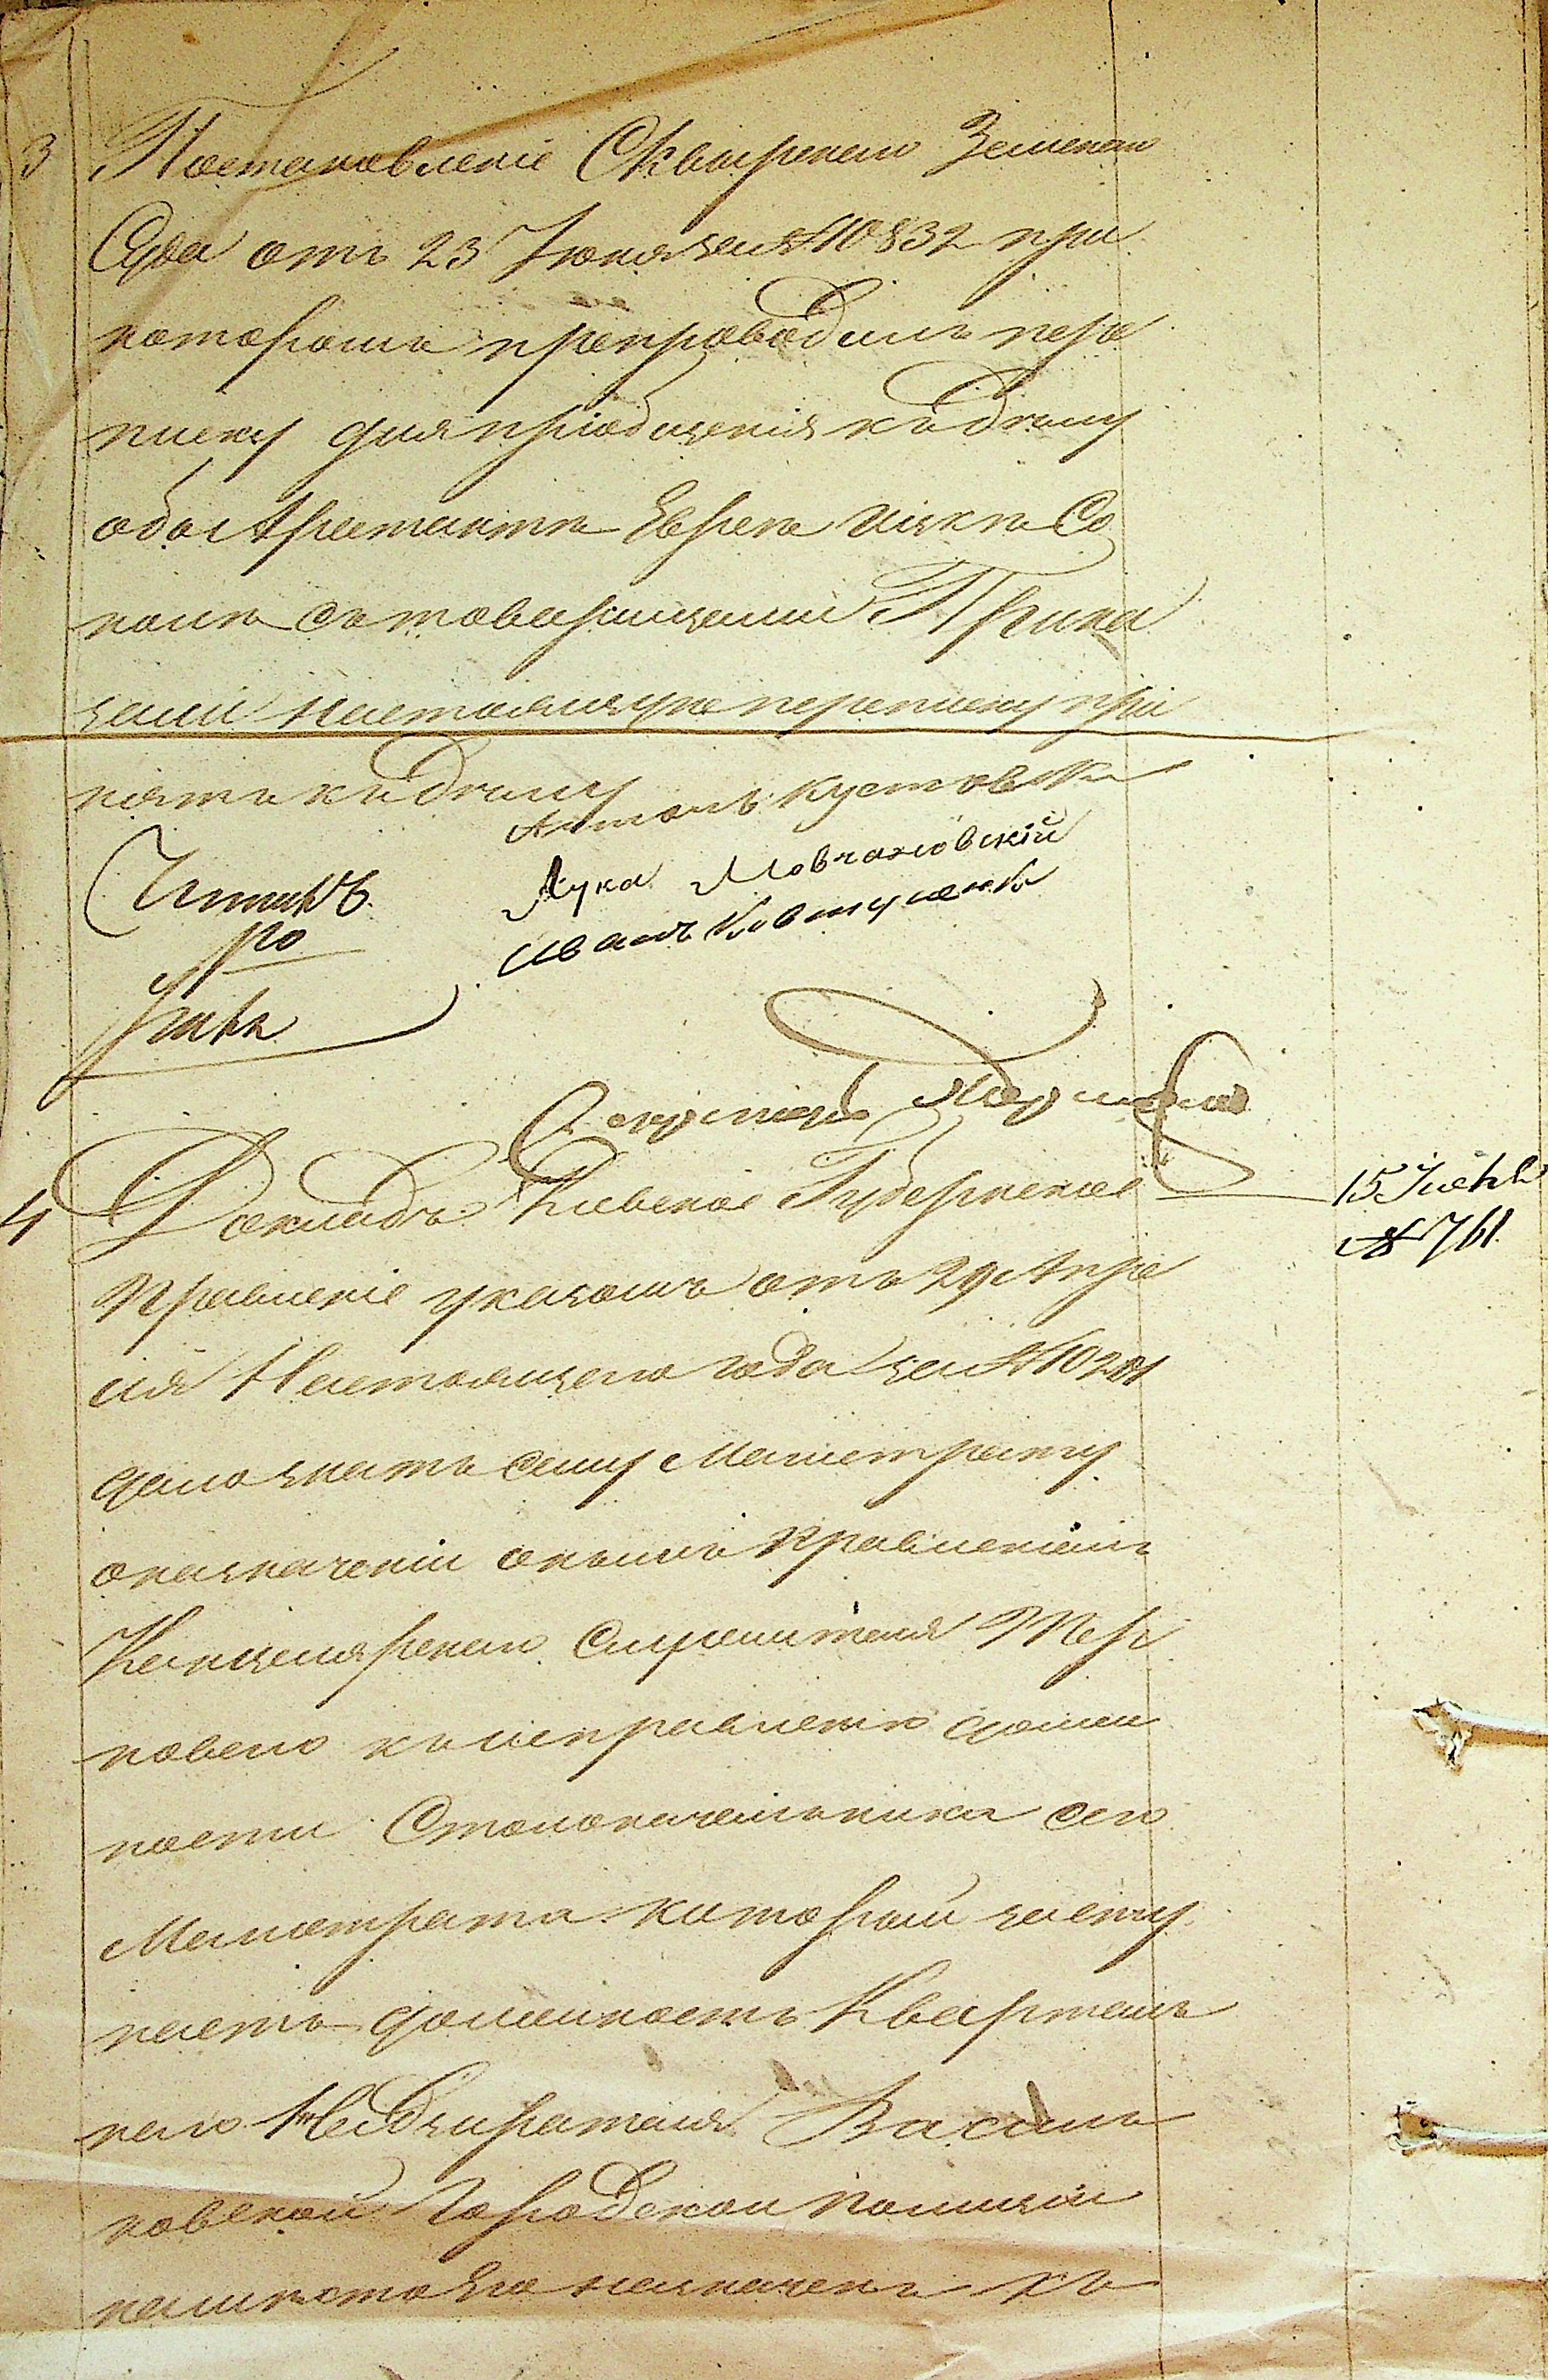 3 Постановленіе Сквирскаго Земскаго
Суда отъ 23 Іюня за № 10832 при
которомъ препроводилъ пере
писку для пріобщенія къ дѣлу
объ Арестантѣ Евреѣ Ицкѣ Со
колѣ съ товарищами Прика
зали настоящую переписку при
нять къ дѣлу
Антонъ Кустовскі
Лука Мовчановскій
Иванъ Ковтуненко
Секретарь
4 Докладъ Кіевское Губернское
15 Іюня
№ 761
Правленіе указомъ отъ 29 Апрѣ
ля Настоящаго года за № 10201
дало знать сему Магистрату
о назначеніи онымъ Правленіемъ
Канцелярскаго Служителя Тер
новаго къ исправленію долж
ности Столоначальника сего
Магистрата который засту
паетъ должность Кварталь
наго Надзирателя Василь
ковской Городской Полиціи
на мѣсто его назначенъ къ